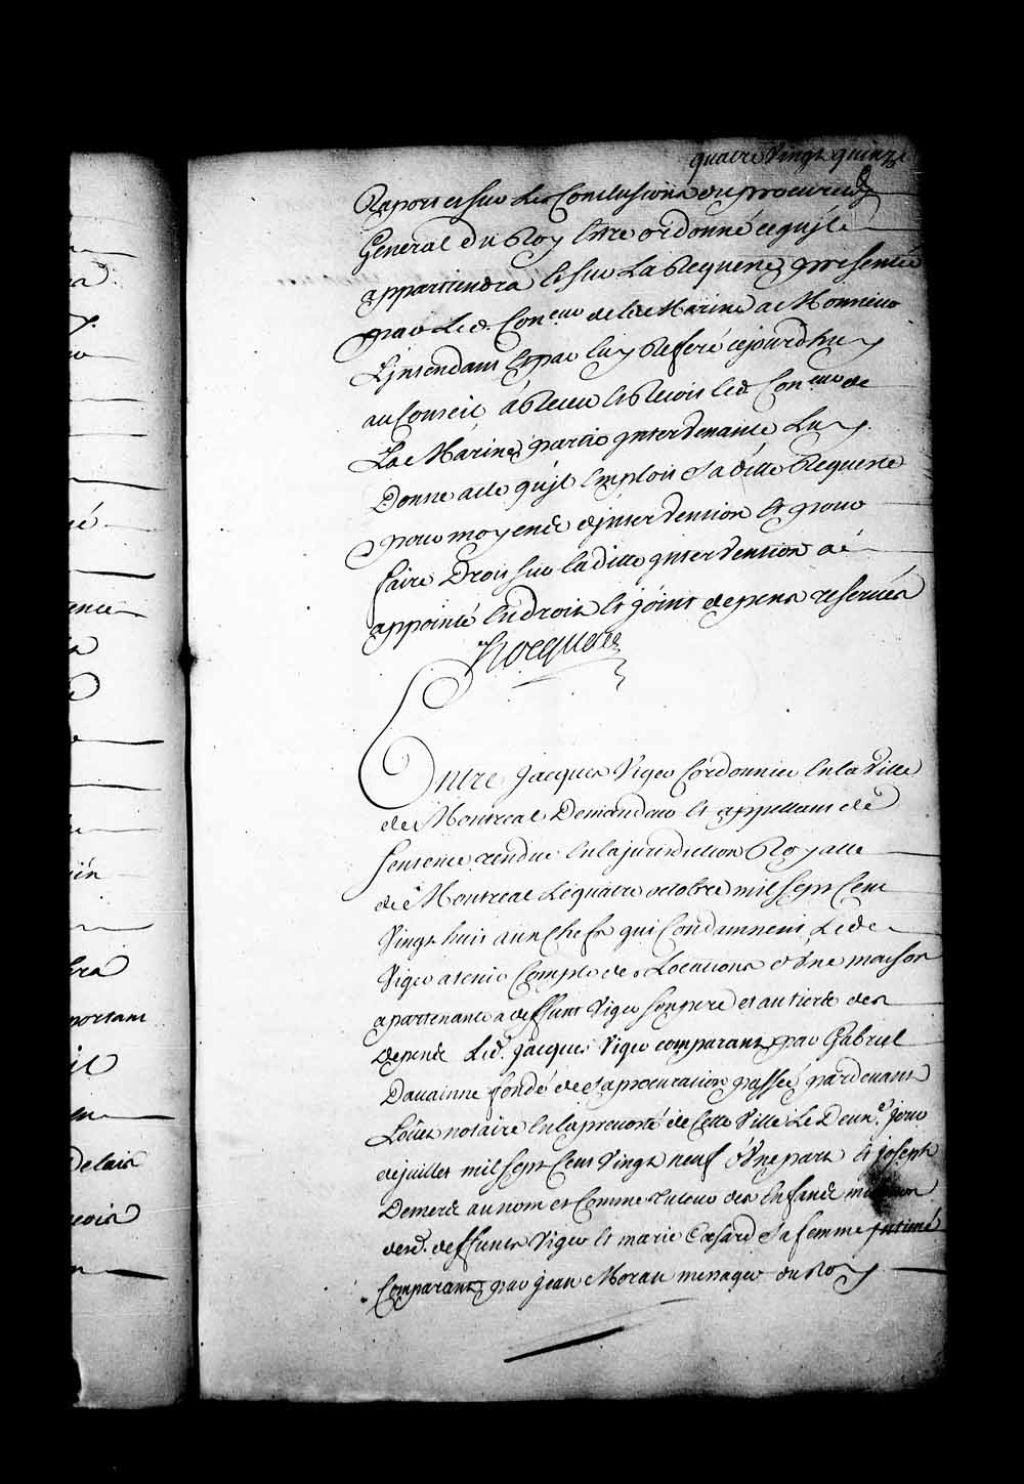 quatre Vingt quinze
Raport et sur les Conclusions du procureur
General du Roy Estre ordonné ce qu'jl
appartiendra Et sur La Requeste presentée
par Led. Con.eur de la Marine a Monsieur
L'jntendant Et par luy Referé cejourdhuy
au Conseil à Receu Et Recoit led. Con.eur de
La Marine partie jntervenante Luy
Donne acte qu'jl Employe sa ditte Requeste
pour moyens d'jntervention Et pour
faire Droit sur la ditte jntervention a
appointé En droit Et joint depens reservés
Hocquart
Entre Jacques Viger Cordonnier En la Ville
de Montreal Demandeur Et appellant de
Sentence rendue En la jurisdiction Royalle
de Montreal Le quatre octobre mil Sept Cent
Vingt huit au Chef qui Condamne Led.
Viger a tenir Compte de Locations d'Vne maison
apartenante a deffunt Viger son pere et au tiers des
depens Led. Jacques Viger comparant par Gabriel
Dauainne fondé de sa procuration passée pardevant
Loüet notaire En la prevosté de Cette Ville Le Deux.e jour
de juillet mil Sept Cent Vingt neuf d'Vne part Et joseph
Demers au nom et Comme tuteur des Enfans mineurs
desd. deffunts Viger Et marie Cesard sa femme jntimé
Comparant par jean Moran messager du Roy
ence
bra
portant
jl
Delais